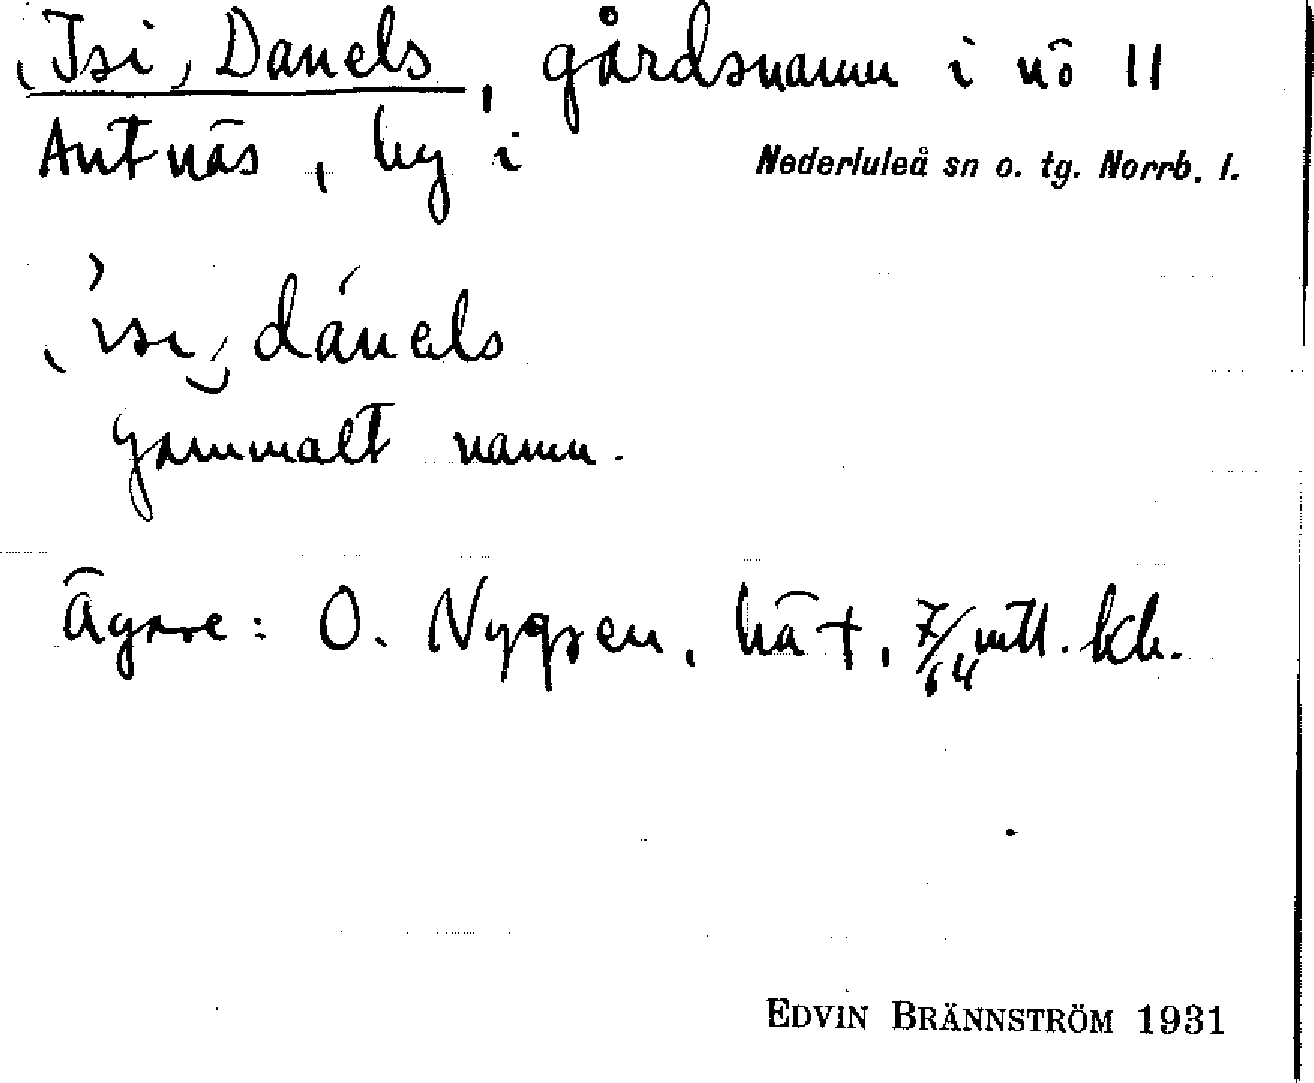 (Isi) Danels, gårdsnamn i nö 11
Antnäs, by i Nederluleå sn o. tg. Norrb. l.
(isi) dánels
gammalt namn.
Ägare: O. Nygren, 7/64 mtl. kb.
EDVIN BRÄNNSTRÖM 1931